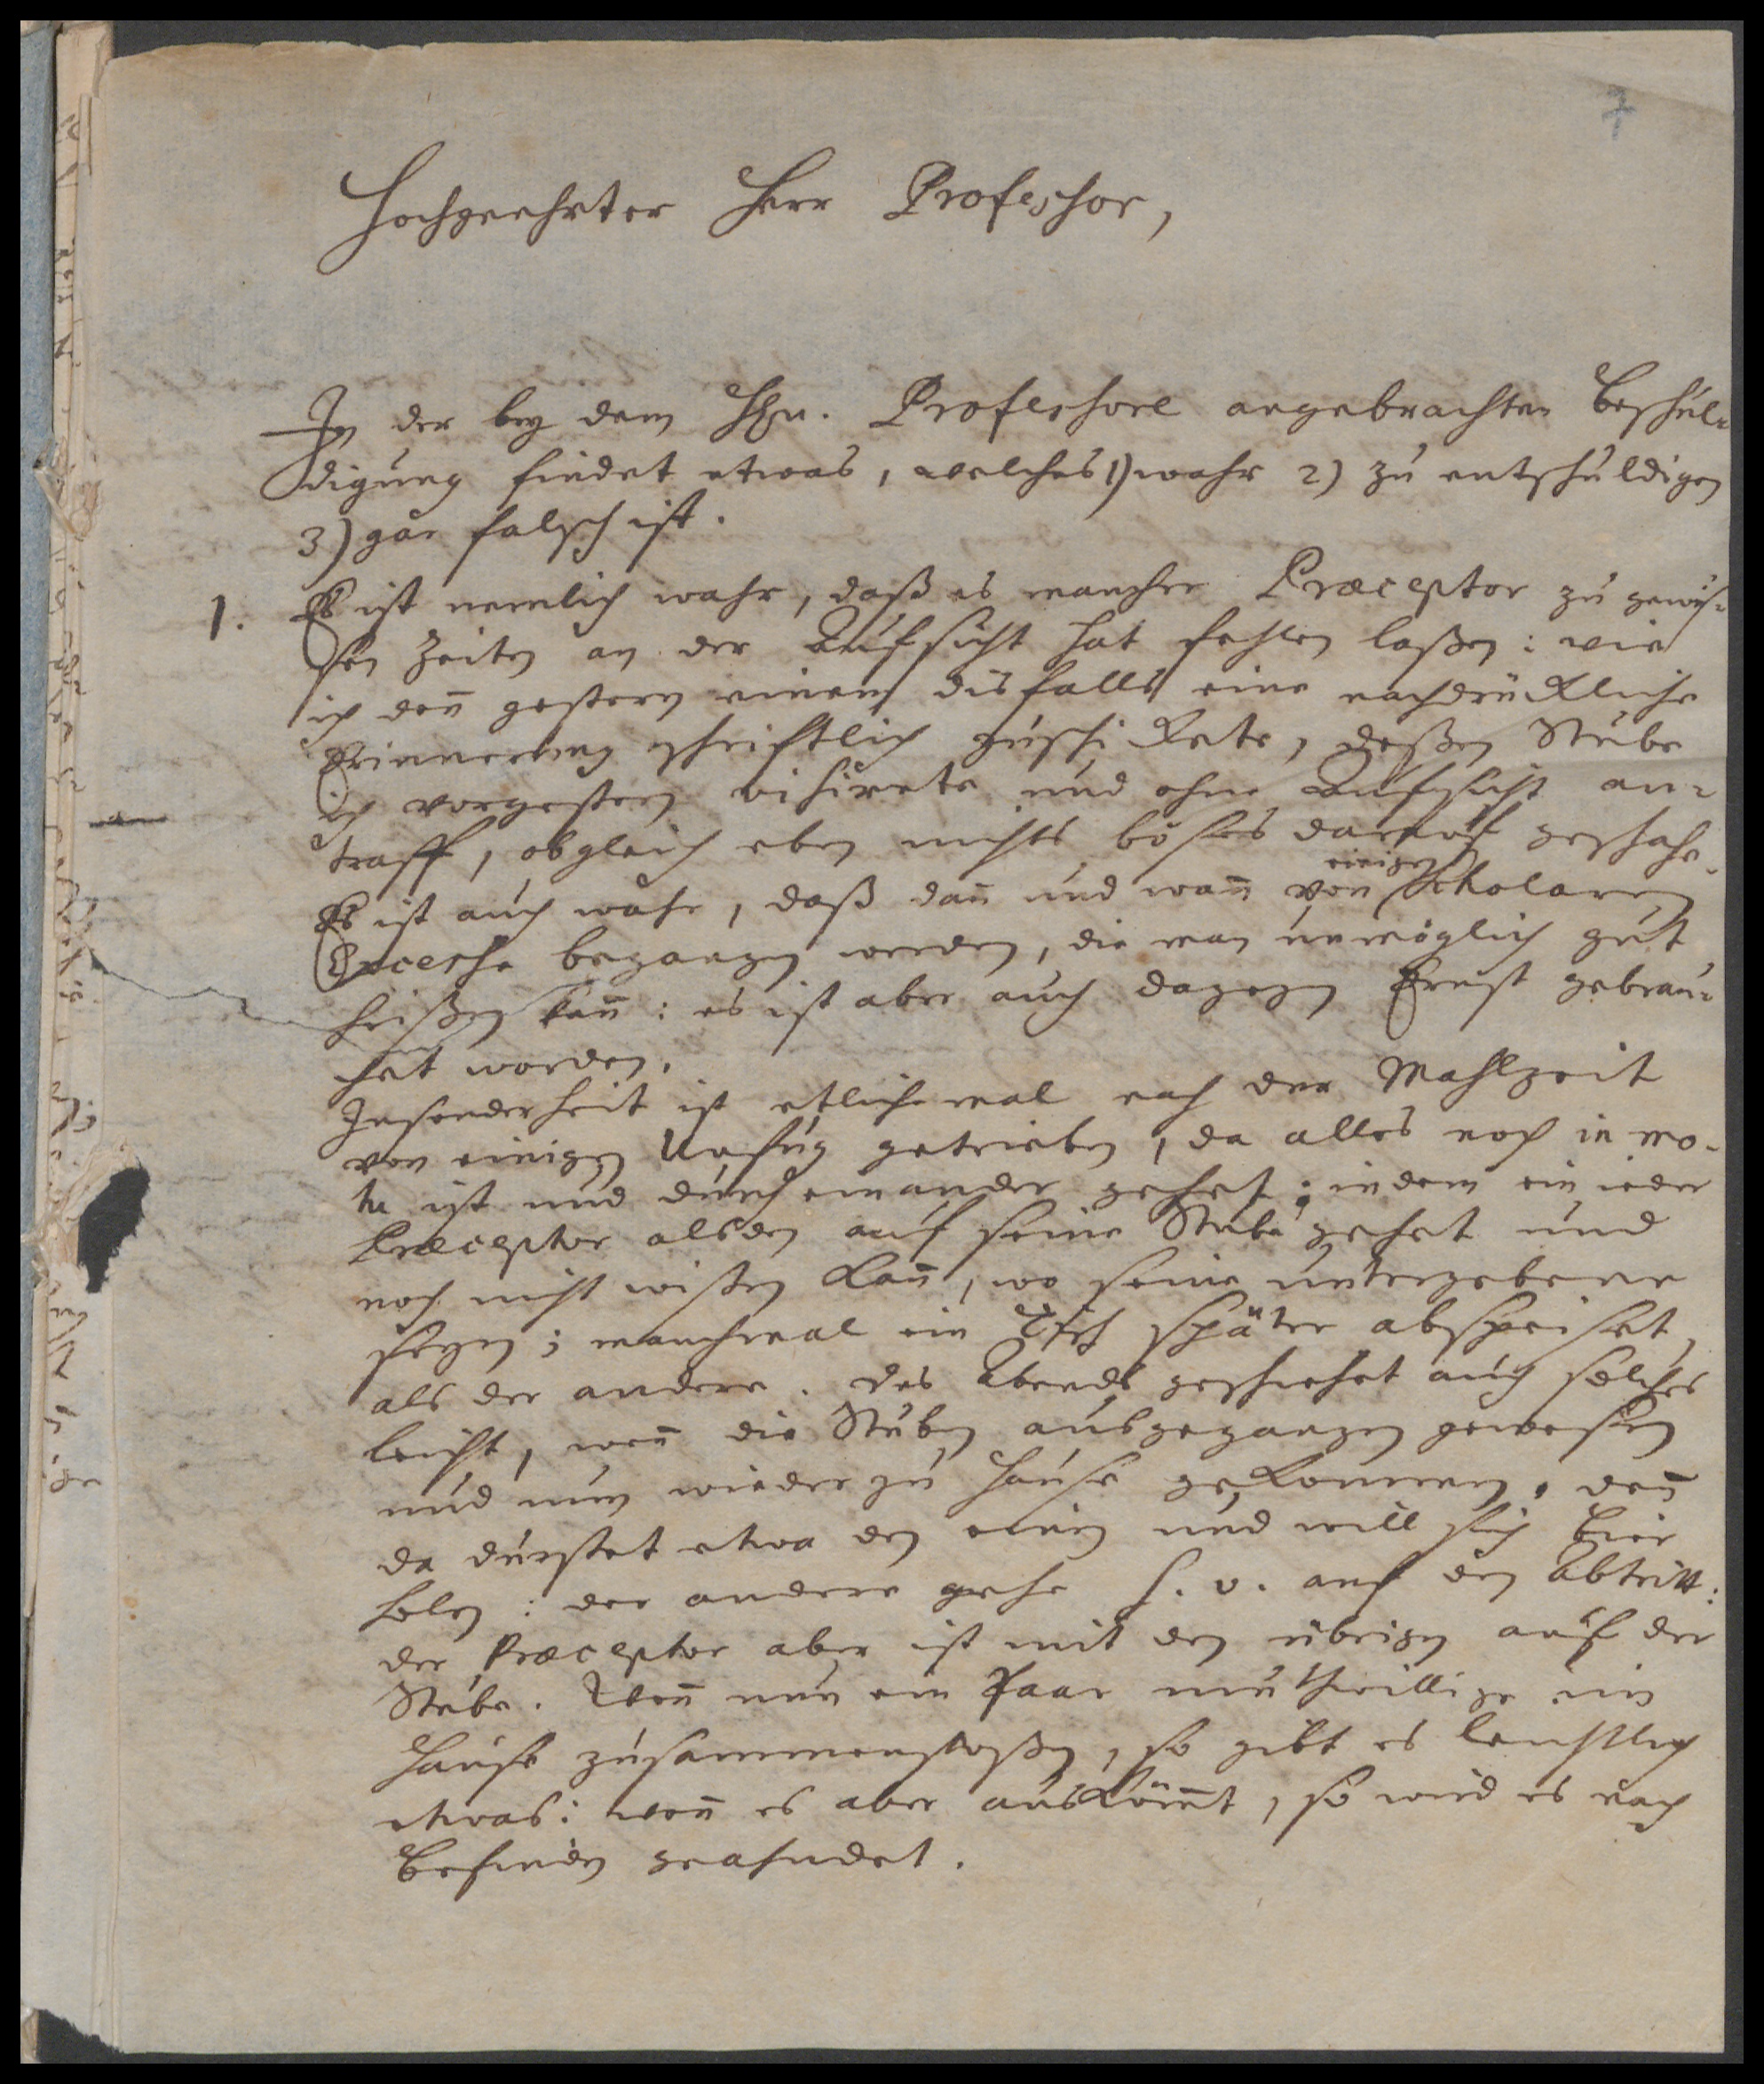 7
Hochgeehrter Herr Professor,
In der bey dem Hhn. Professore angebrachten Beschul-
digung findet etwas, welches 1) wahr 2) zu entschuldigen
3) gar falsch ist.
1. Es ist nemlich wahr, daß es mancher Præceptor zu gewiß-
sen Zeiten an der Aufsicht hat fehlen laßen: wie
ich den̄ gestern einem disfalls eine nachdrückliche
Erinnerung schriftlich zuschickete, deßen Stube
ich vorgestern visirete und ohne Aufsicht an-
traff, obgleich eben nichts böses darauf geschahe.
Es ist auch wahr, daß dan̄ und wan̄ von einigen Scholaren
Excesse begangen werden, die man unmöglich gut
heißen kan̄: es ist aber auch dagegen Ernst gebrau-
chet worden.
Insonderheit ist etliche mal nach der Mahlzeit
von einigen Unfug getrieben, da alles noch in mo-
tu ist und durch einander gehet; indem ein ieder
Præceptor alsden auf seine Stube gehet und
noch nicht wißen kan̄, wo seine untergebene
seyn; manchmal ein Tisch später abspeiset,
als der andere. Des Abends geschiehet auch solches
leicht, wen̄ die Stuben ausgegangen gewesen
und nun wieder zu Hause gekommen. den̄
da durstet etwa den einen und will sich Bier
holen: der andere gehe s. v. auf den Abtritt:
der Præceptor aber ist mit den übrigen auf der
Stube. Wen̄ nun ein Paar muthwillige im
Hause zusammenstoßen, so gibt es leichtlich
etwas: wen̄ es aber ausköm̄t, so wird es nach
Befinden geahndet.